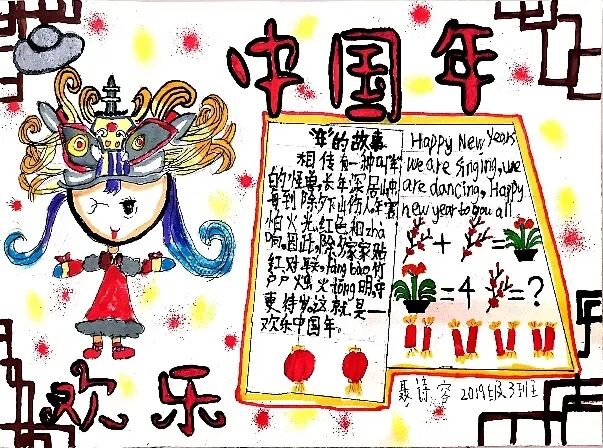 中国年
"年"的故事
相传有一种叫"年"
的怪兽,长年深居山中
每到除夕下山伤人,年害
怕火光,红色和zhà
响。因此,除夕家家贴
红对联,rán fàng bào竹
户户烛火tōng明,守
更待岁。这就是一
欢乐中国年。
Happy New Years
we are singing, we
are dancing, Happy
new year to you all
+ =
=4 =?
2019级3班
欢乐